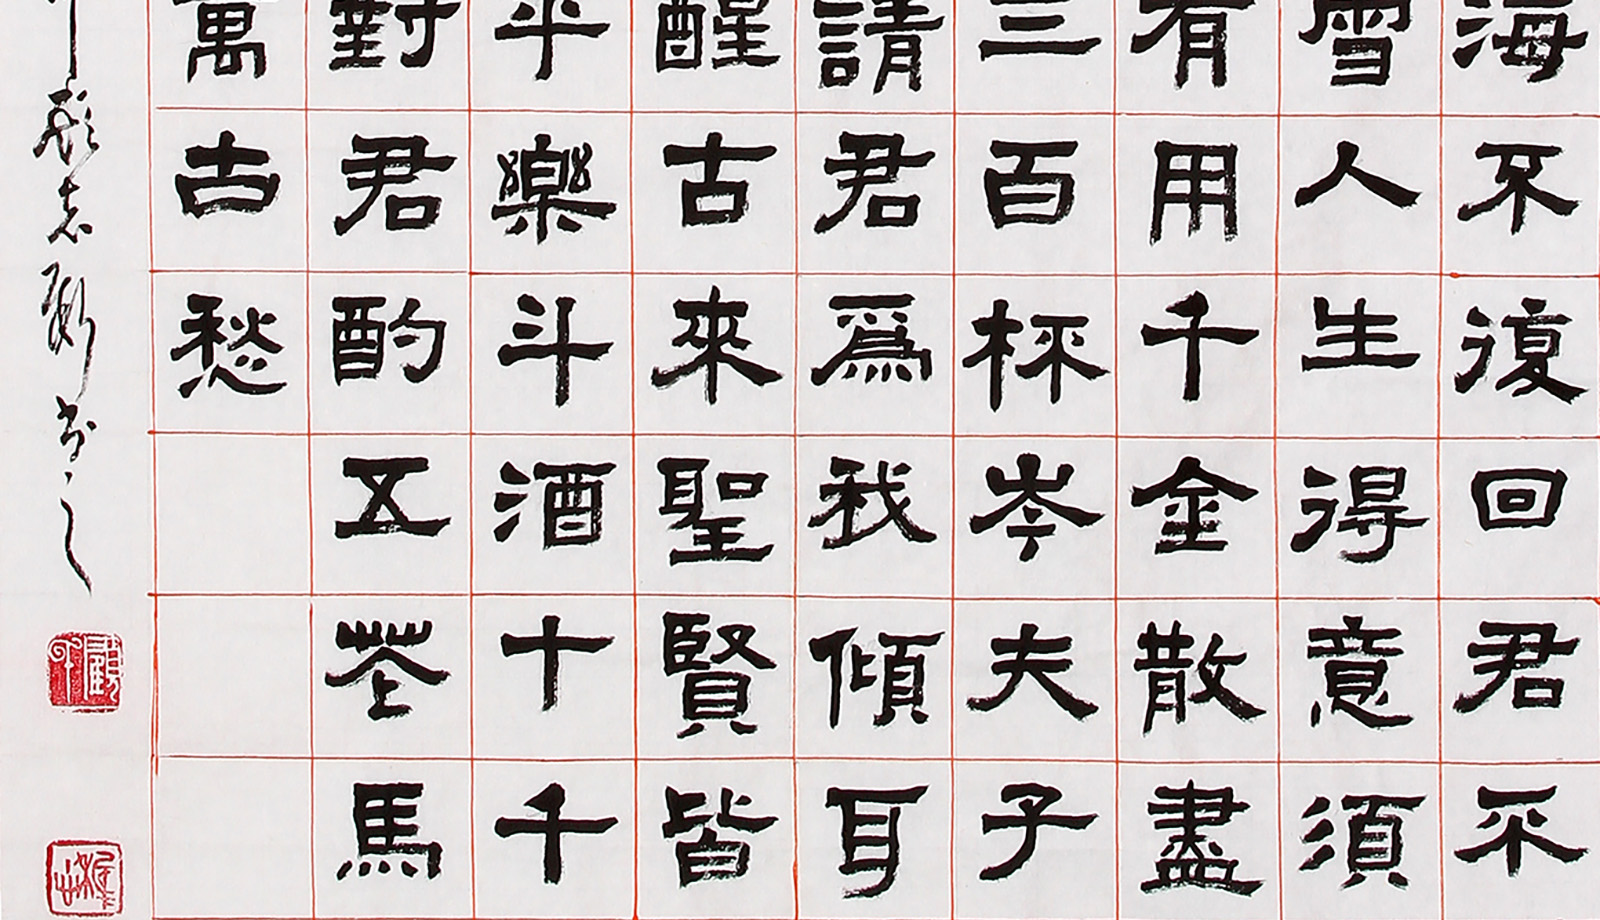 海不復回君不
雪人生得意須
有用千金散盡
三百杯岑夫子
請君爲我傾耳
醒古來聖賢皆
平樂斗酒十千
對君酌五花馬
萬古愁
顧志新書之